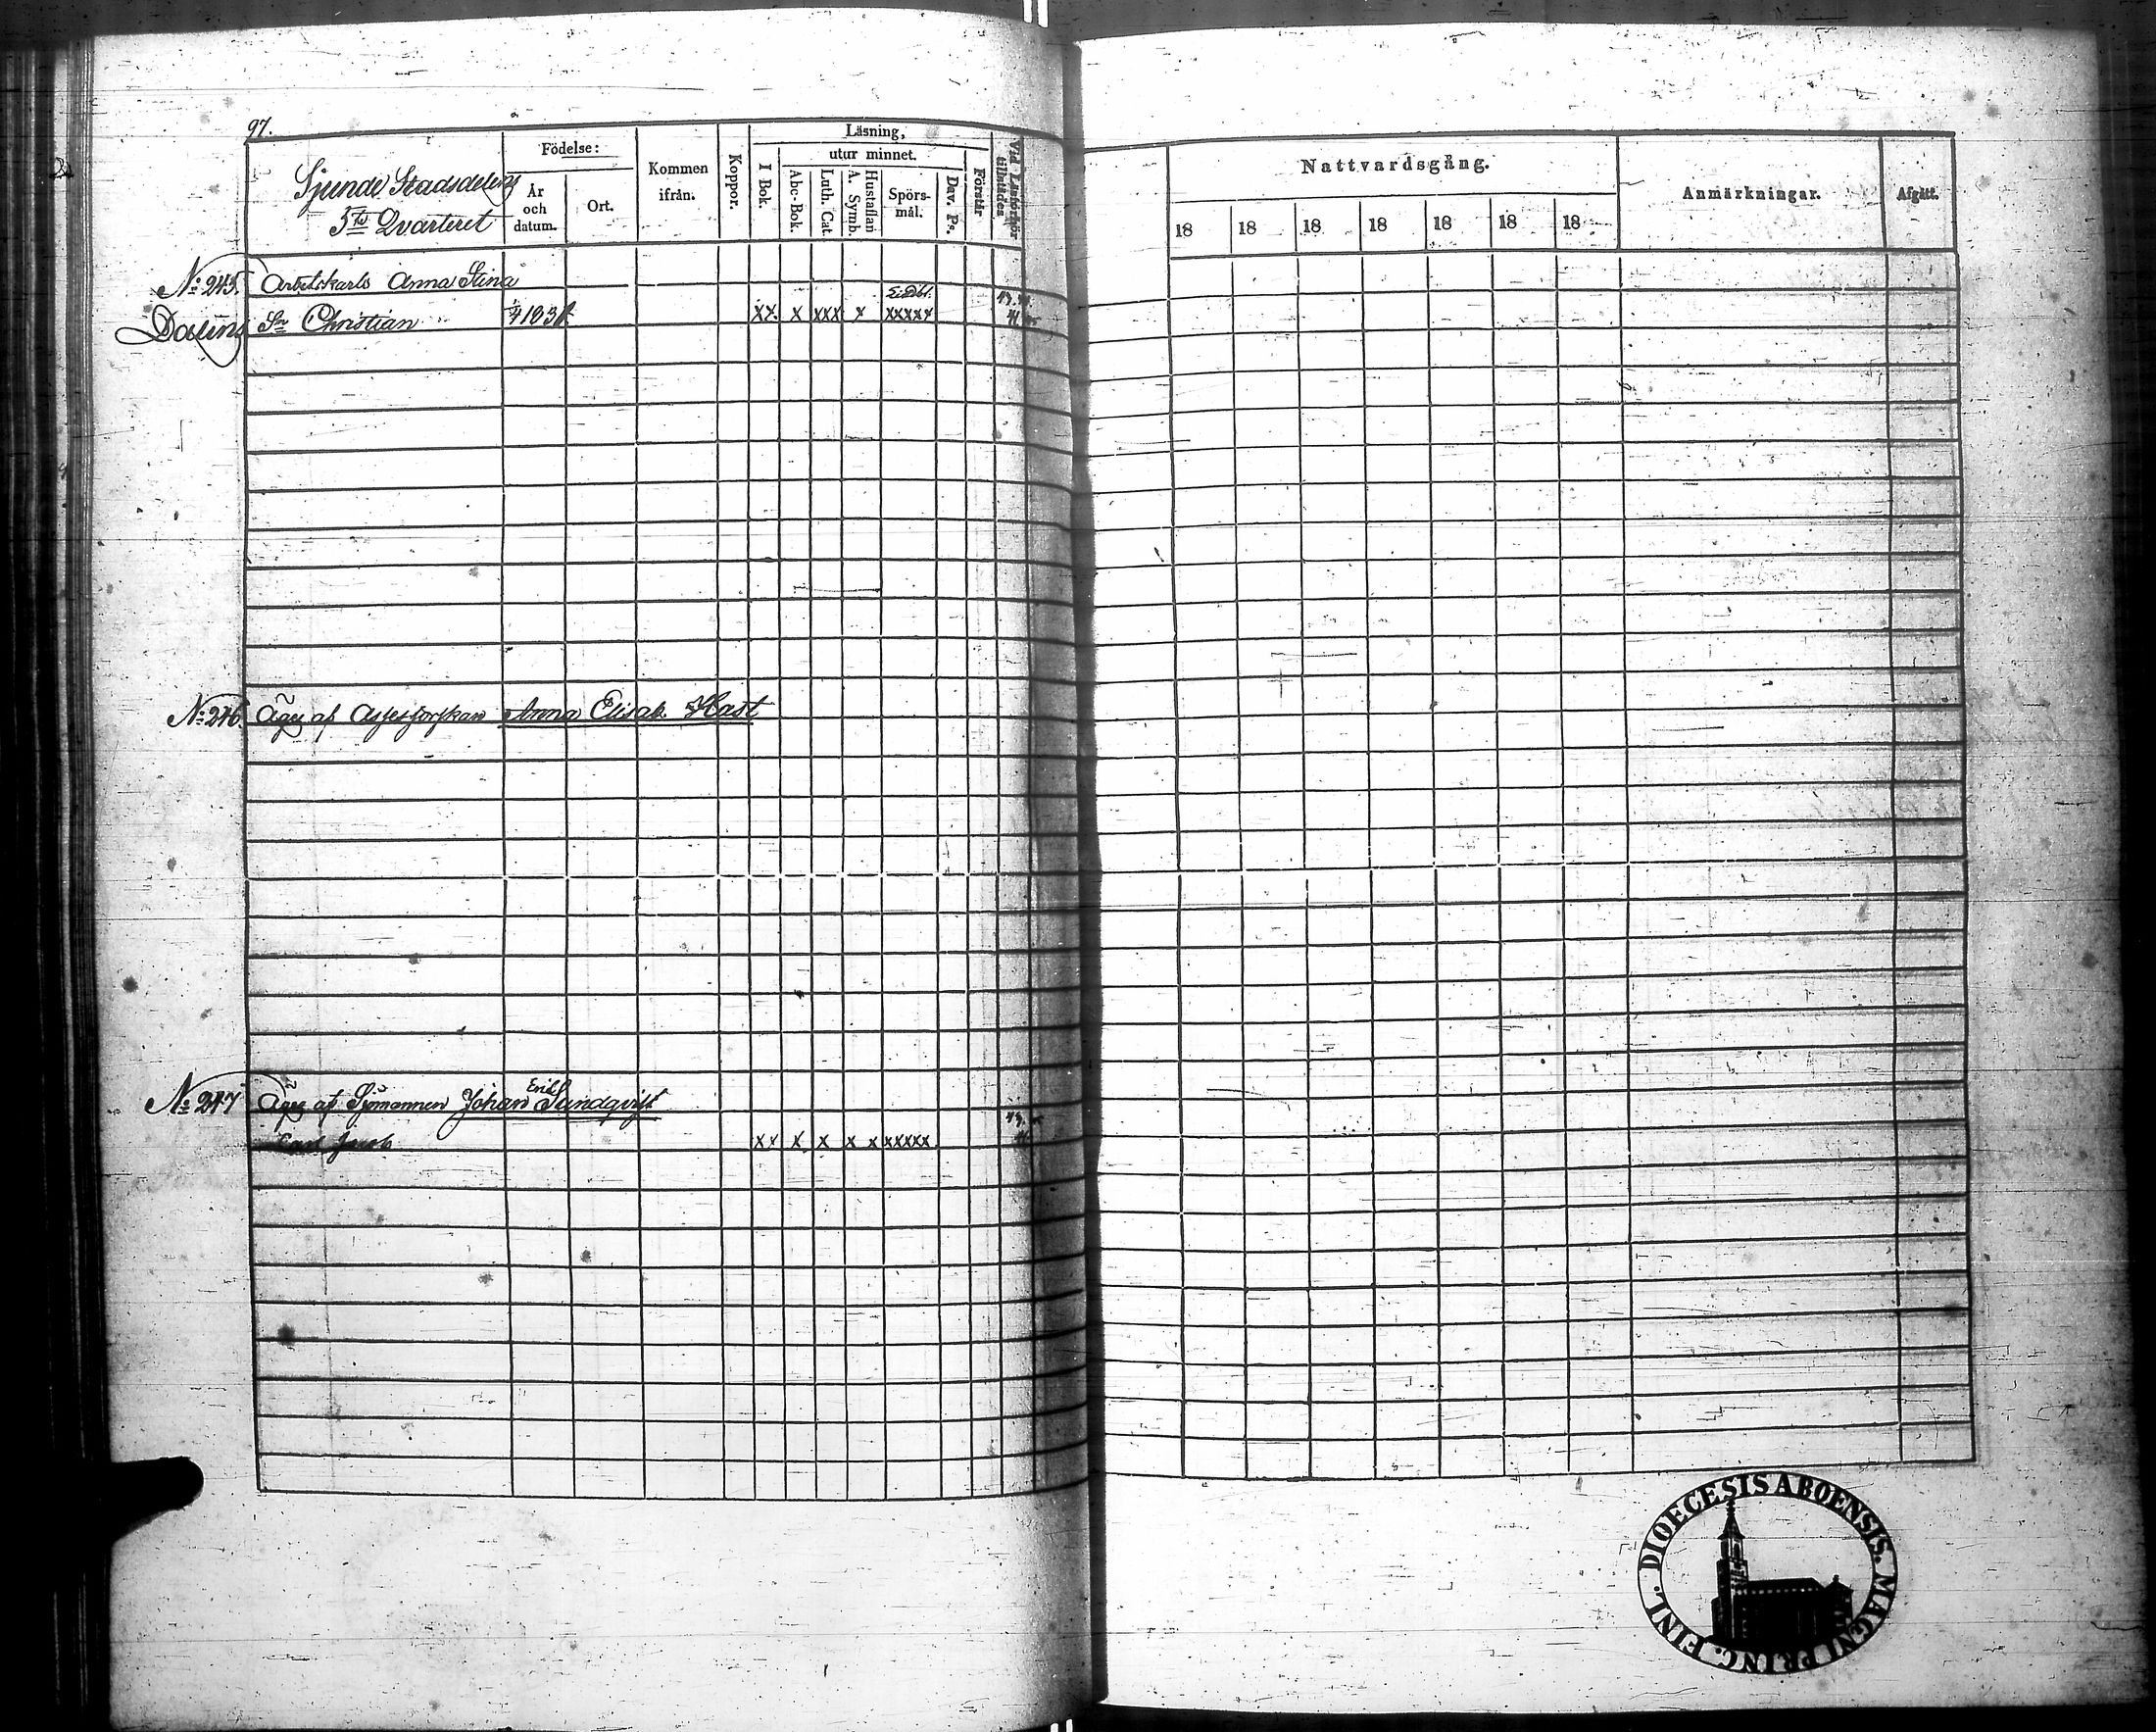 97.
Sjunde Stadsdelens
5te Qvarteret
Födelse:
År och datum.
Ort.
Kommen ifrån.
Koppor.
Läsning,
I Bok.
utur minnet.
Abc-Bok.
Luth. Cat.
Hustaflan A. Symb.
Spörsmål.
Dav. Ps.
Förstår
Vid Läsförhör tillstädes
Nattvardsgång.
18 18 18 18 18 18 18
Anmärkningar.
Afgått.
No 245. Arbetskarls Anna Stina
Sn Christian xx x xxx x xxxxx
No 246. Äges af Assessorskan Anna Elisab. Hast
No 247 Äges af Sjömannen Johan Eric Sundqvist
Carl Jacob xx x x x x xxxxx
DIOECESIS ABOENSIS. MAGNI PRINC. FINL.